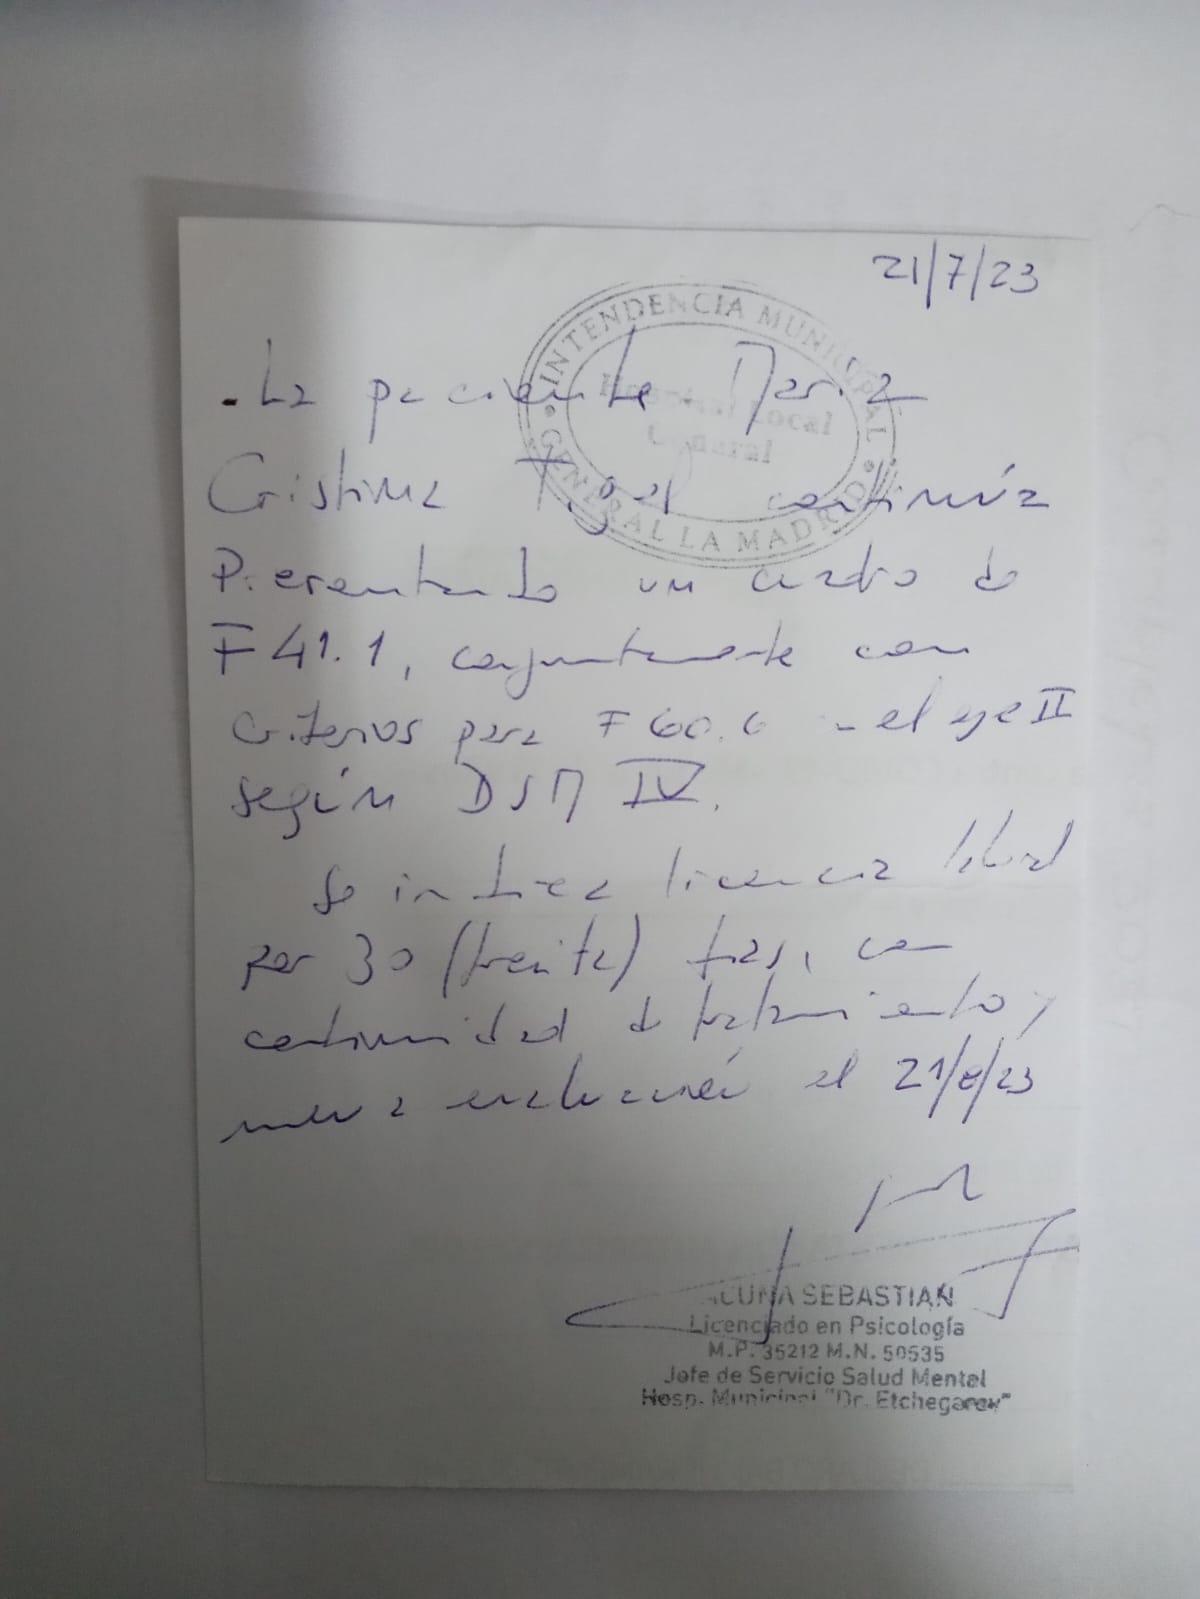 21/7/23
INTENDENCIA MUNICIPAL
Hospital Local
General
GENERAL LA MADRID
. La paciente Maria
Cristina continúa
Presentando un cuadro de
F 41.1, conjuntamente con
criterios para F 60.6 en el eje II
según DSM IV.
Se indica licencia laboral
por 30 (treinta) días, con
continuidad de tratamiento y
nueva evaluación el 21/8/23
ACUÑA SEBASTIAN
Licenciado en Psicología
M.P. 35212 M.N. 50535
Jefe de Servicio Salud Mental
Hosp. Municipal "Dr. Etchegaray"